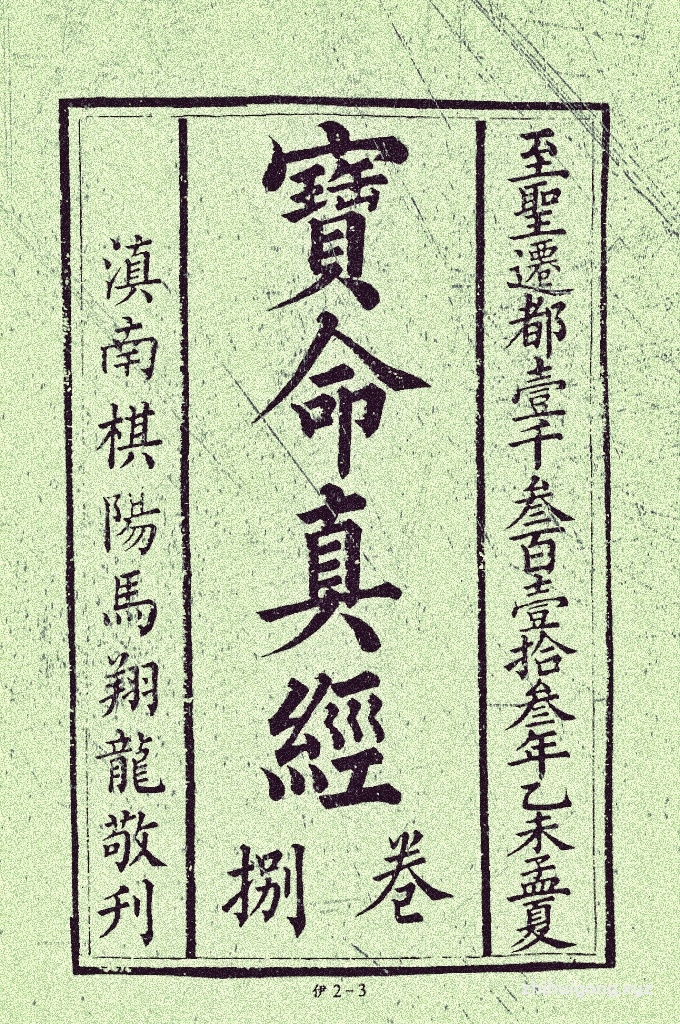 至聖遷都壹千叁百壹拾叁年乙未孟夏
寶命真經
卷捌
滇南棋陽馬翔龍敬刊
伊2-3